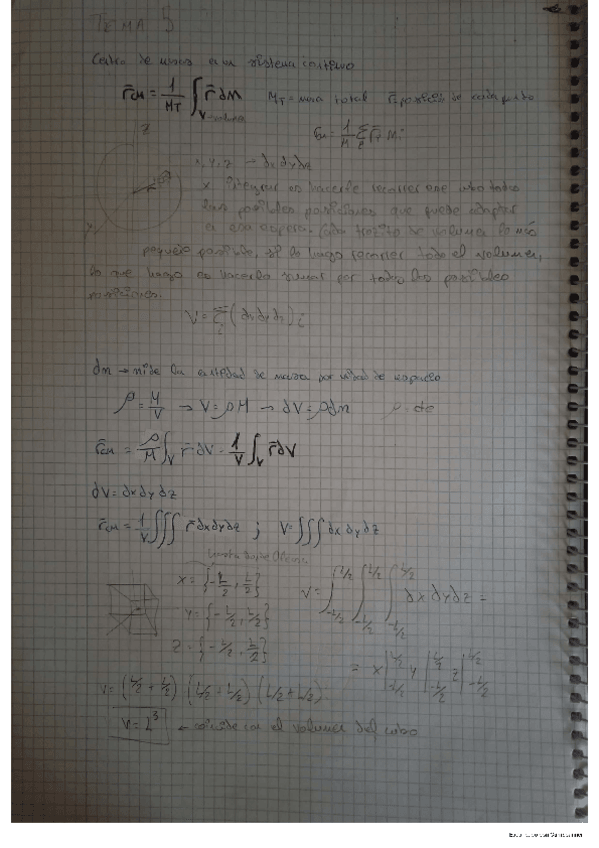 TEMA 5
Centro de masas en un sistema continuo
r̄cm = 1/MT ∫V r̄ dm MT = masa total r̄ posición de cada punto
r̄cm = 1/M Σi r̄i mi
z
x, y, z → dx dy dz
x Integrar es hacerle recorrer ese cubo todas
las posibles posiciones que puede adoptar
en esa esfera. Cada trozito de volumen lo más
pequeño posible, se lo hago recorrer todo el volumen,
lo que hago es hacerlo sumar por todas las posibles
posiciones.
V = Σi (dx dy dz)i
dm → mide la cantidad de masa por unidad de espacio
ρ = M/V → V = ρM → dV = ρdm
r̄cm = ρ/M ∫V r̄ dV = 1/V ∫V r̄ dV
dV = dx dy dz
r̄cm = 1/V ∫∫∫ r̄ dx dy dz ; V = ∫∫∫ dx dy dz
x = {-L/2, L/2}
V = ∫-L/2^L/2 ∫-L/2^L/2 ∫-L/2^L/2 dx dy dz =
y = {-L/2, L/2}
z = {-L/2, L/2}
= x|-L/2^L/2 y|-L/2^L/2 z|-L/2^L/2
V = (L/2 + L/2) (L/2 + L/2) (L/2 + L/2)
V = L³ ← coincide con el volumen del cubo